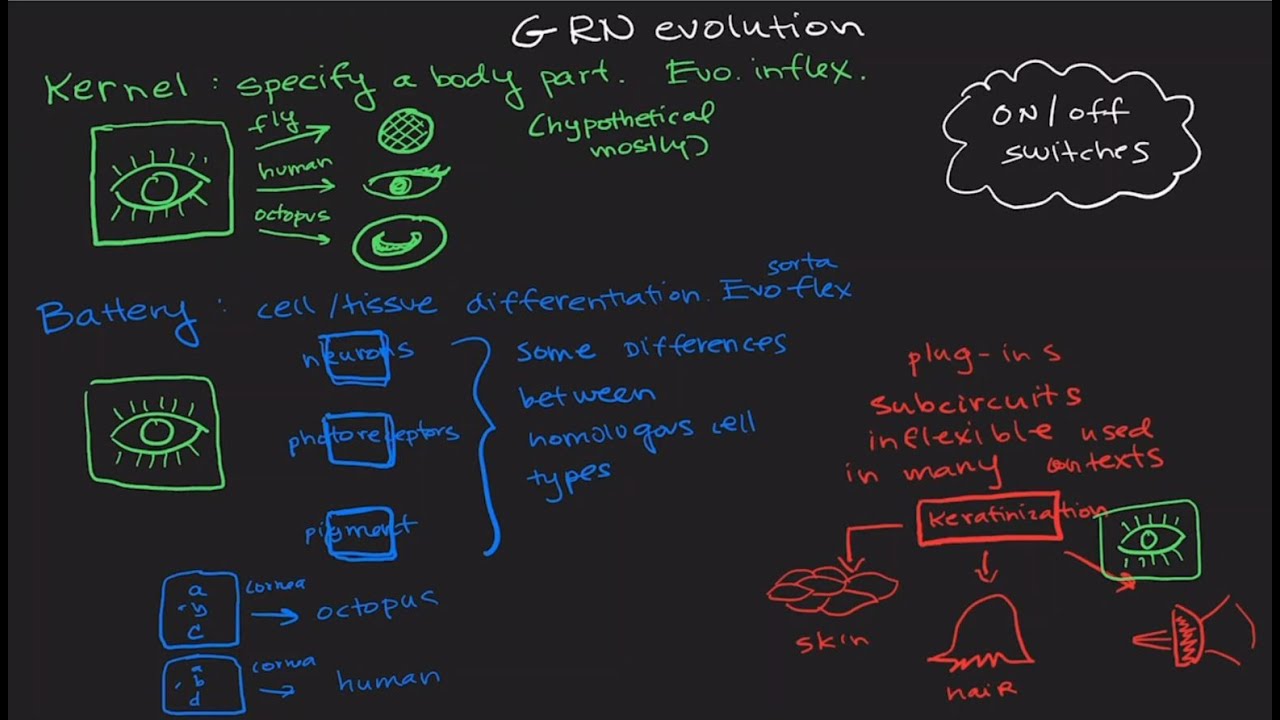 GRN evolution
Kernel: specify a body part. Evo. inflex.
(hypothetical
mostly)
ON/off
switches
fly
human
octopus
Battery: cell/tissue differentiation. Evo sorta flex
neurons
photoreceptors
pigment
some differences
between
homologous cell
types
a
b
c
cornea
octopus
a
b
d
cornea
human
plug-ins
subcircuits
inflexible used
in many contexts
keratinization
skin
hair